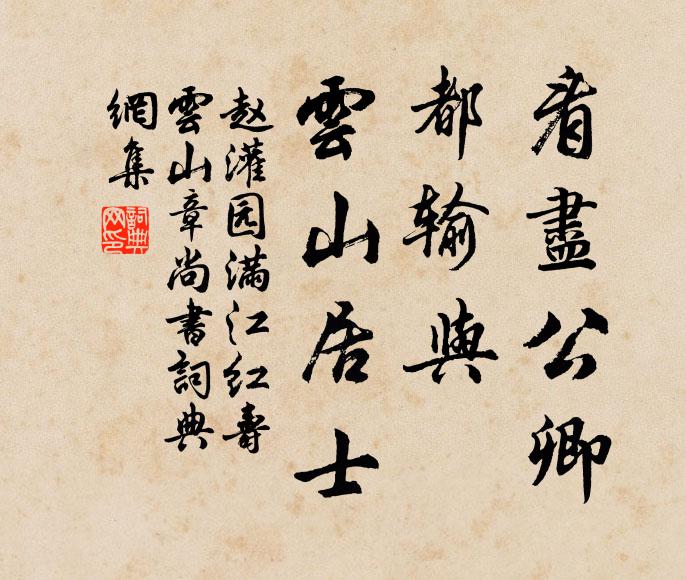 看盡公卿
都输與
雲山居士
赵灌园满江红壽
雲山章尚書詞典
網集
詞典
网印